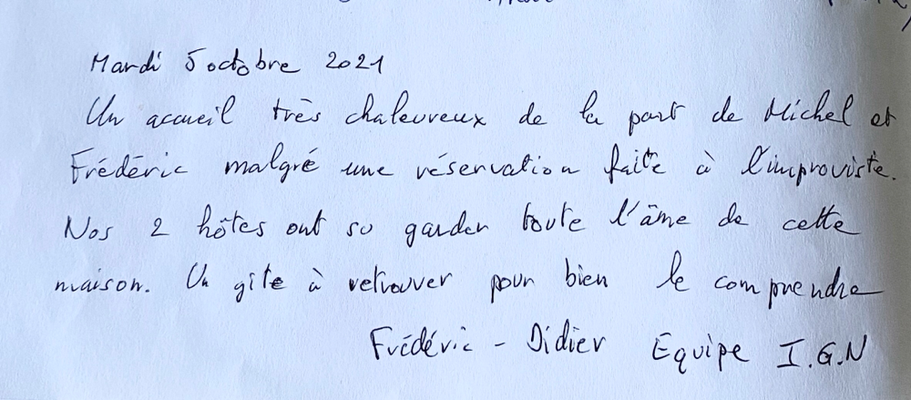 Mardi 5 octobre 2021
Un accueil très chaleureux de la part de Michel et
Frédéric malgré une réservation faite à l'improviste.
Nos 2 hôtes ont su garder toute l'âme de cette
maison. Un gite à retrouver pour bien le comprendre
Frédéric - Didier Equipe I.G.N